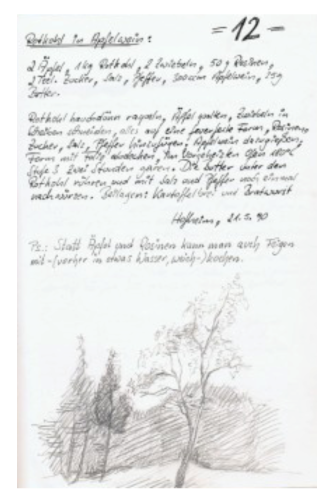 Rotkohl in Apfelwein:
= 12 =
2 Äpfel, 1 kg Rotkohl, 2 Zwiebeln, 50 g Rosinen,
2 Teel. Zucker, Salz, Pfeffer, 500 ccm Apfelwein, 75g
Butter.
Rotkohl hauchdünn raspeln, Äpfel garten, Zwiebeln in
Scheiben schneiden, alles auf eine feuerfeste Form, Rosinen,
Zucher, Salz, Pfeffer hinzufügen, Apfelwein darupgießen,
Form mit Folie abdecken, im vorgeheizten Ofen
Stufe 5 zwei Stunden garen. Die Butter unter den
Rotkohl rühren und mit Salz und Pfeffer noch einmal
nachwürzen. Beilagen: Kartoffelbrei und Bratwurst
Hofheim, 21.5.90
Ps.: Statt Äpfel und Rosinen kann man auch Feigen
mit-(vorher in etwas Wasser, weich-)kochen.